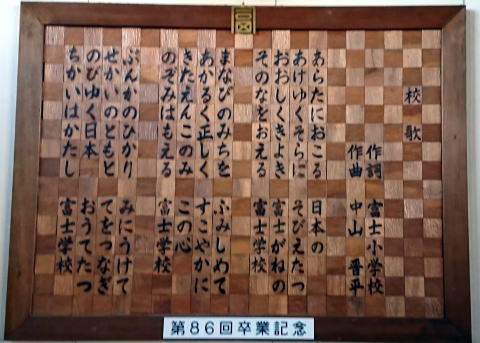 校歌
作詞 富士小学校
作曲 中山 晋平
あらたにおこる 日本の
あけゆくそらに そびえたつ
おおしくきよき 富士がねの
そのなをおえる 富士学校
まなびのみちを ふみしめて
あかるく正しく すこやかに
きたえんこのみ この心
のぞみはもえる 富士学校
ぶんかのひかり みにうけて
せかいのともと てをつなぎ
のびゆく日本 おうてたつ
ちかいはかたし 富士学校
第86回卒業記念